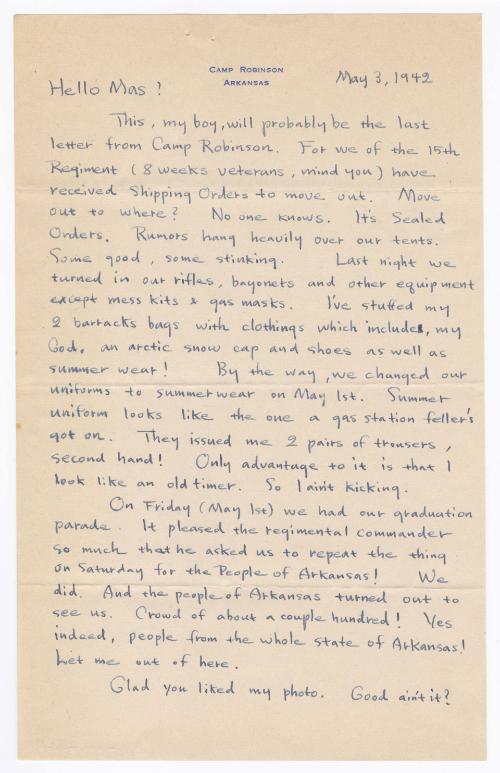 CAMP ROBINSON
ARKANSAS
May 3, 1942
Hello Mas?
This, my boy, will probably be the last
letter from Camp Robinson. For we of the 15th
Regiment (8 weeks veterans, mind you) have
received Shipping Orders to move out. Move
out to where? No one knows. It's Sealed
Orders. Rumors hang heavily over our tents.
Some good, some stinking. Last night we
turned in our rifles, bayonets and other equipment
except mess kits & gas masks. I've stuffed my
2 barracks bags with clothings which includes, my
God, an arctic snow cap and shoes as well as
summer wear! By the way, we changed our
uniforms to summerwear on May 1st. Summer
uniform looks like the one a gas station feller's
got on. They issued me 2 pairs of trousers,
second hand! Only advantage to it is that I
look like an old timer. So I ain't kicking.
On Friday (May 1st) we had our graduation
parade. It pleased the regimental commander
so much that he asked us to repeat the thing
on Saturday for the People of Arkansas! We
did. And the people of Arkansas turned out to
see us. Crowd of about a couple hundred! Yes
indeed, people from the whole state of Arkansas!
Let me out of here.
Glad you liked my photo. Good ain't it?